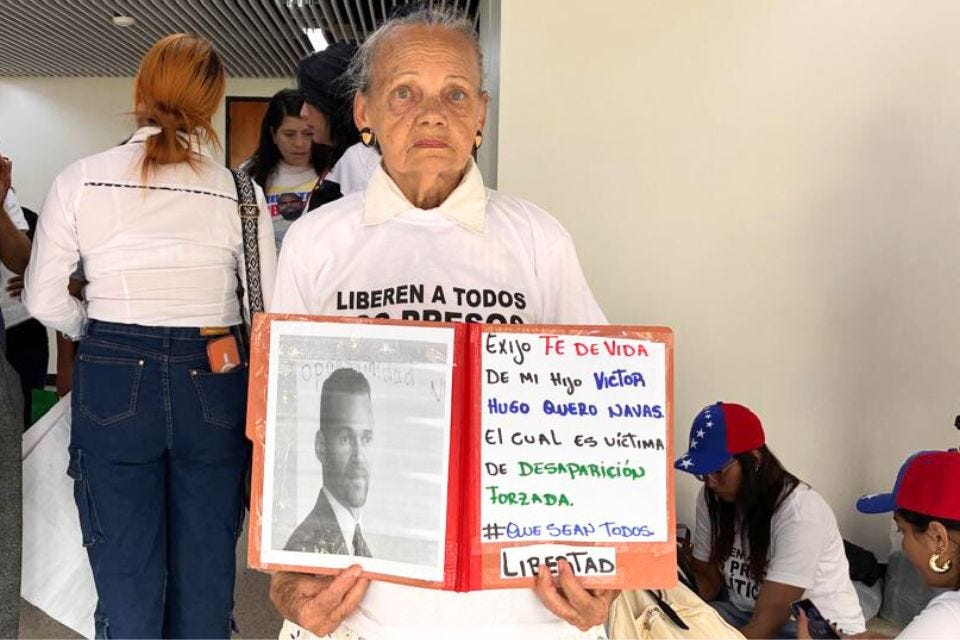 LIBEREN A TODOS
opacidad
EXIJO FE DE VIDA
DE MI HIJO VICTOR
HUGO QUERO NAVAS.
El CUAL ES VÍCTIMA
DE DESAPARICIÓN
FORZADA.
#QUE SEAN TODOS.
LIBERTAD